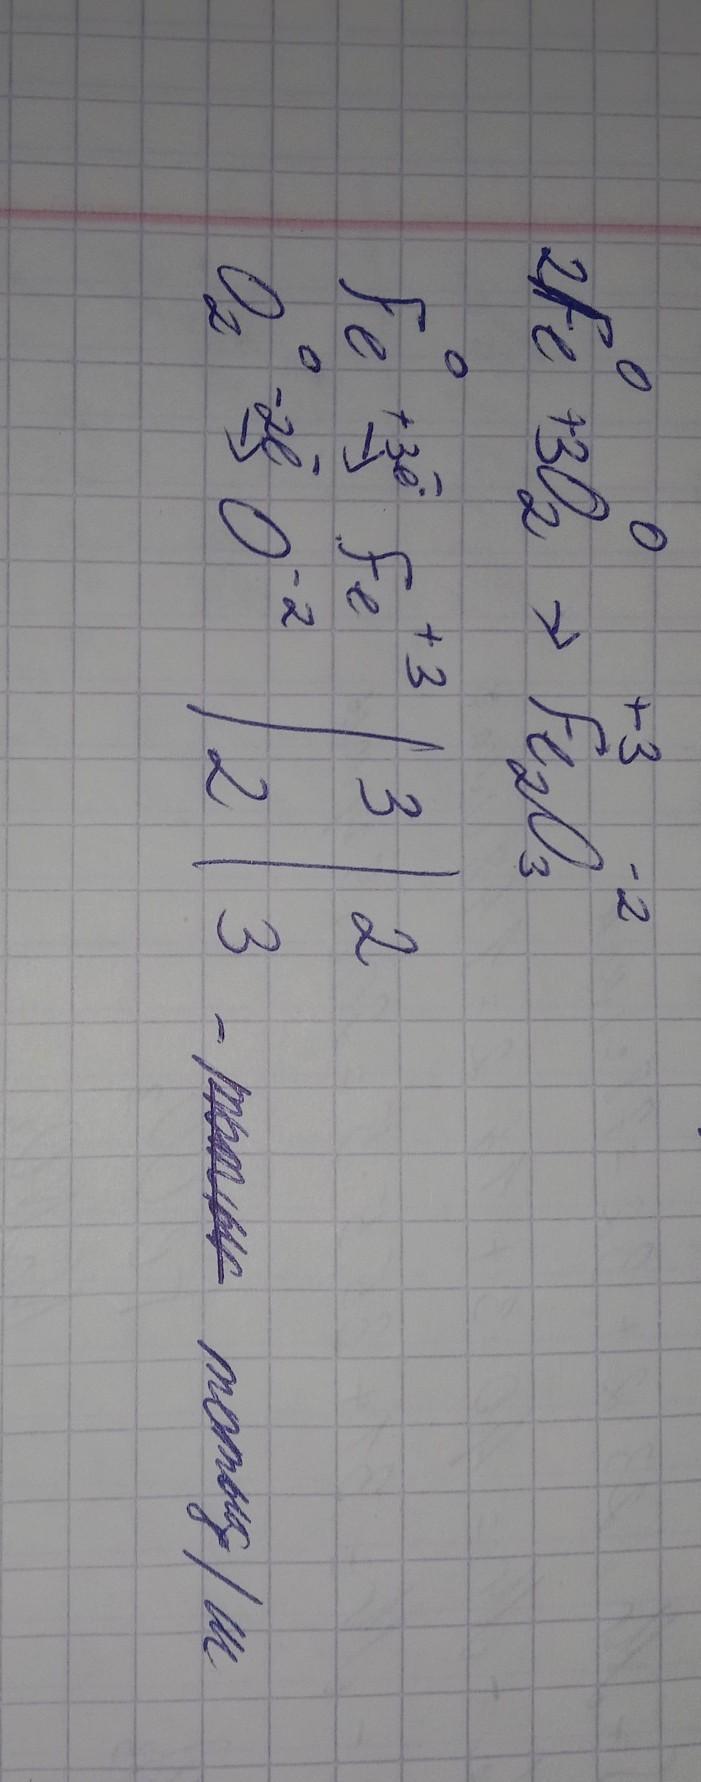 2Fe⁰ + 3O₂⁰ → Fe₂⁺³O₃⁻²
Fe⁰ +3ē → Fe⁺³ | 3 | 2
O₂⁰ -2ē → O⁻² | 2 | 3 -